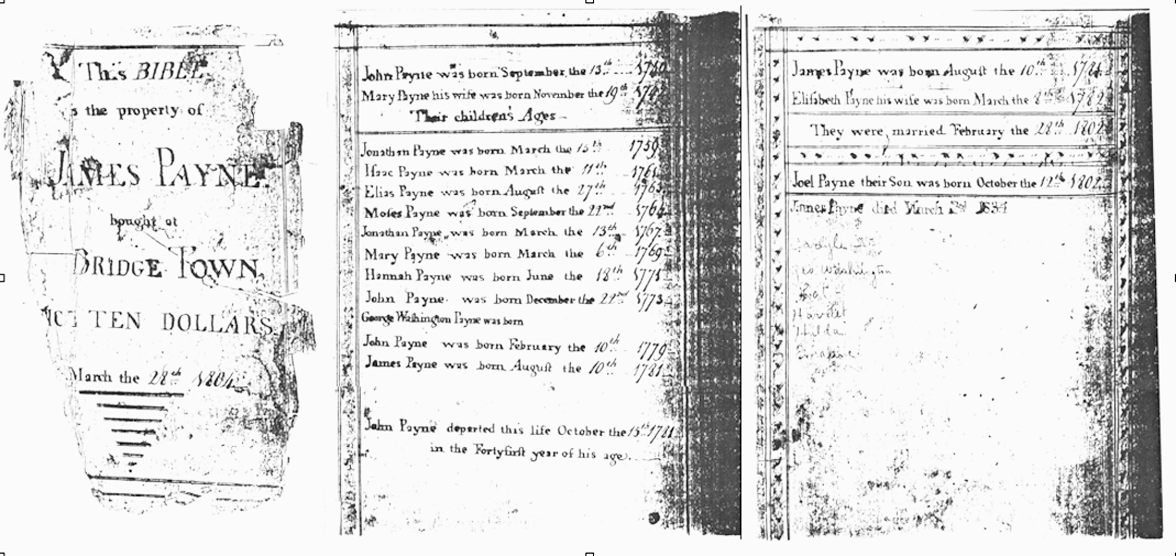 This BIBLE
is the property of
JAMES PAYNE.
bought at
BRIDGE TOWN,
TEN DOLLARS
March the 28th 1804
John Payne was born September the 13th
Mary Payne his wife was born November the 19th
Their children's Ages
Jonathan Payne was born March the 15th 1759
Isaac Payne was born March the 11th 1761
Elias Payne was born August the 27th 1763
Moses Payne was born September the 22nd 1764
Jonathan Payne was born March the 13th 1767
Mary Payne was born March the 6th 1769
Hannah Payne was born June the 18th 1771
John Payne was born December the 22nd 1773
George Washington Payne was born
John Payne was born February the 10th 1779
James Payne was born August the 10th 1781
John Payne departed this life October the 15th 1781
in the Fortyfirst year of his age
James Payne was born August the 10th 1781
Elisabeth Payne his wife was born March the 8th 1782
They were married February the 28th 1802
Joel Payne their Son was born October the 12th 1802
James Payne died March 1834
Geo Washington
Harriet
Hulda